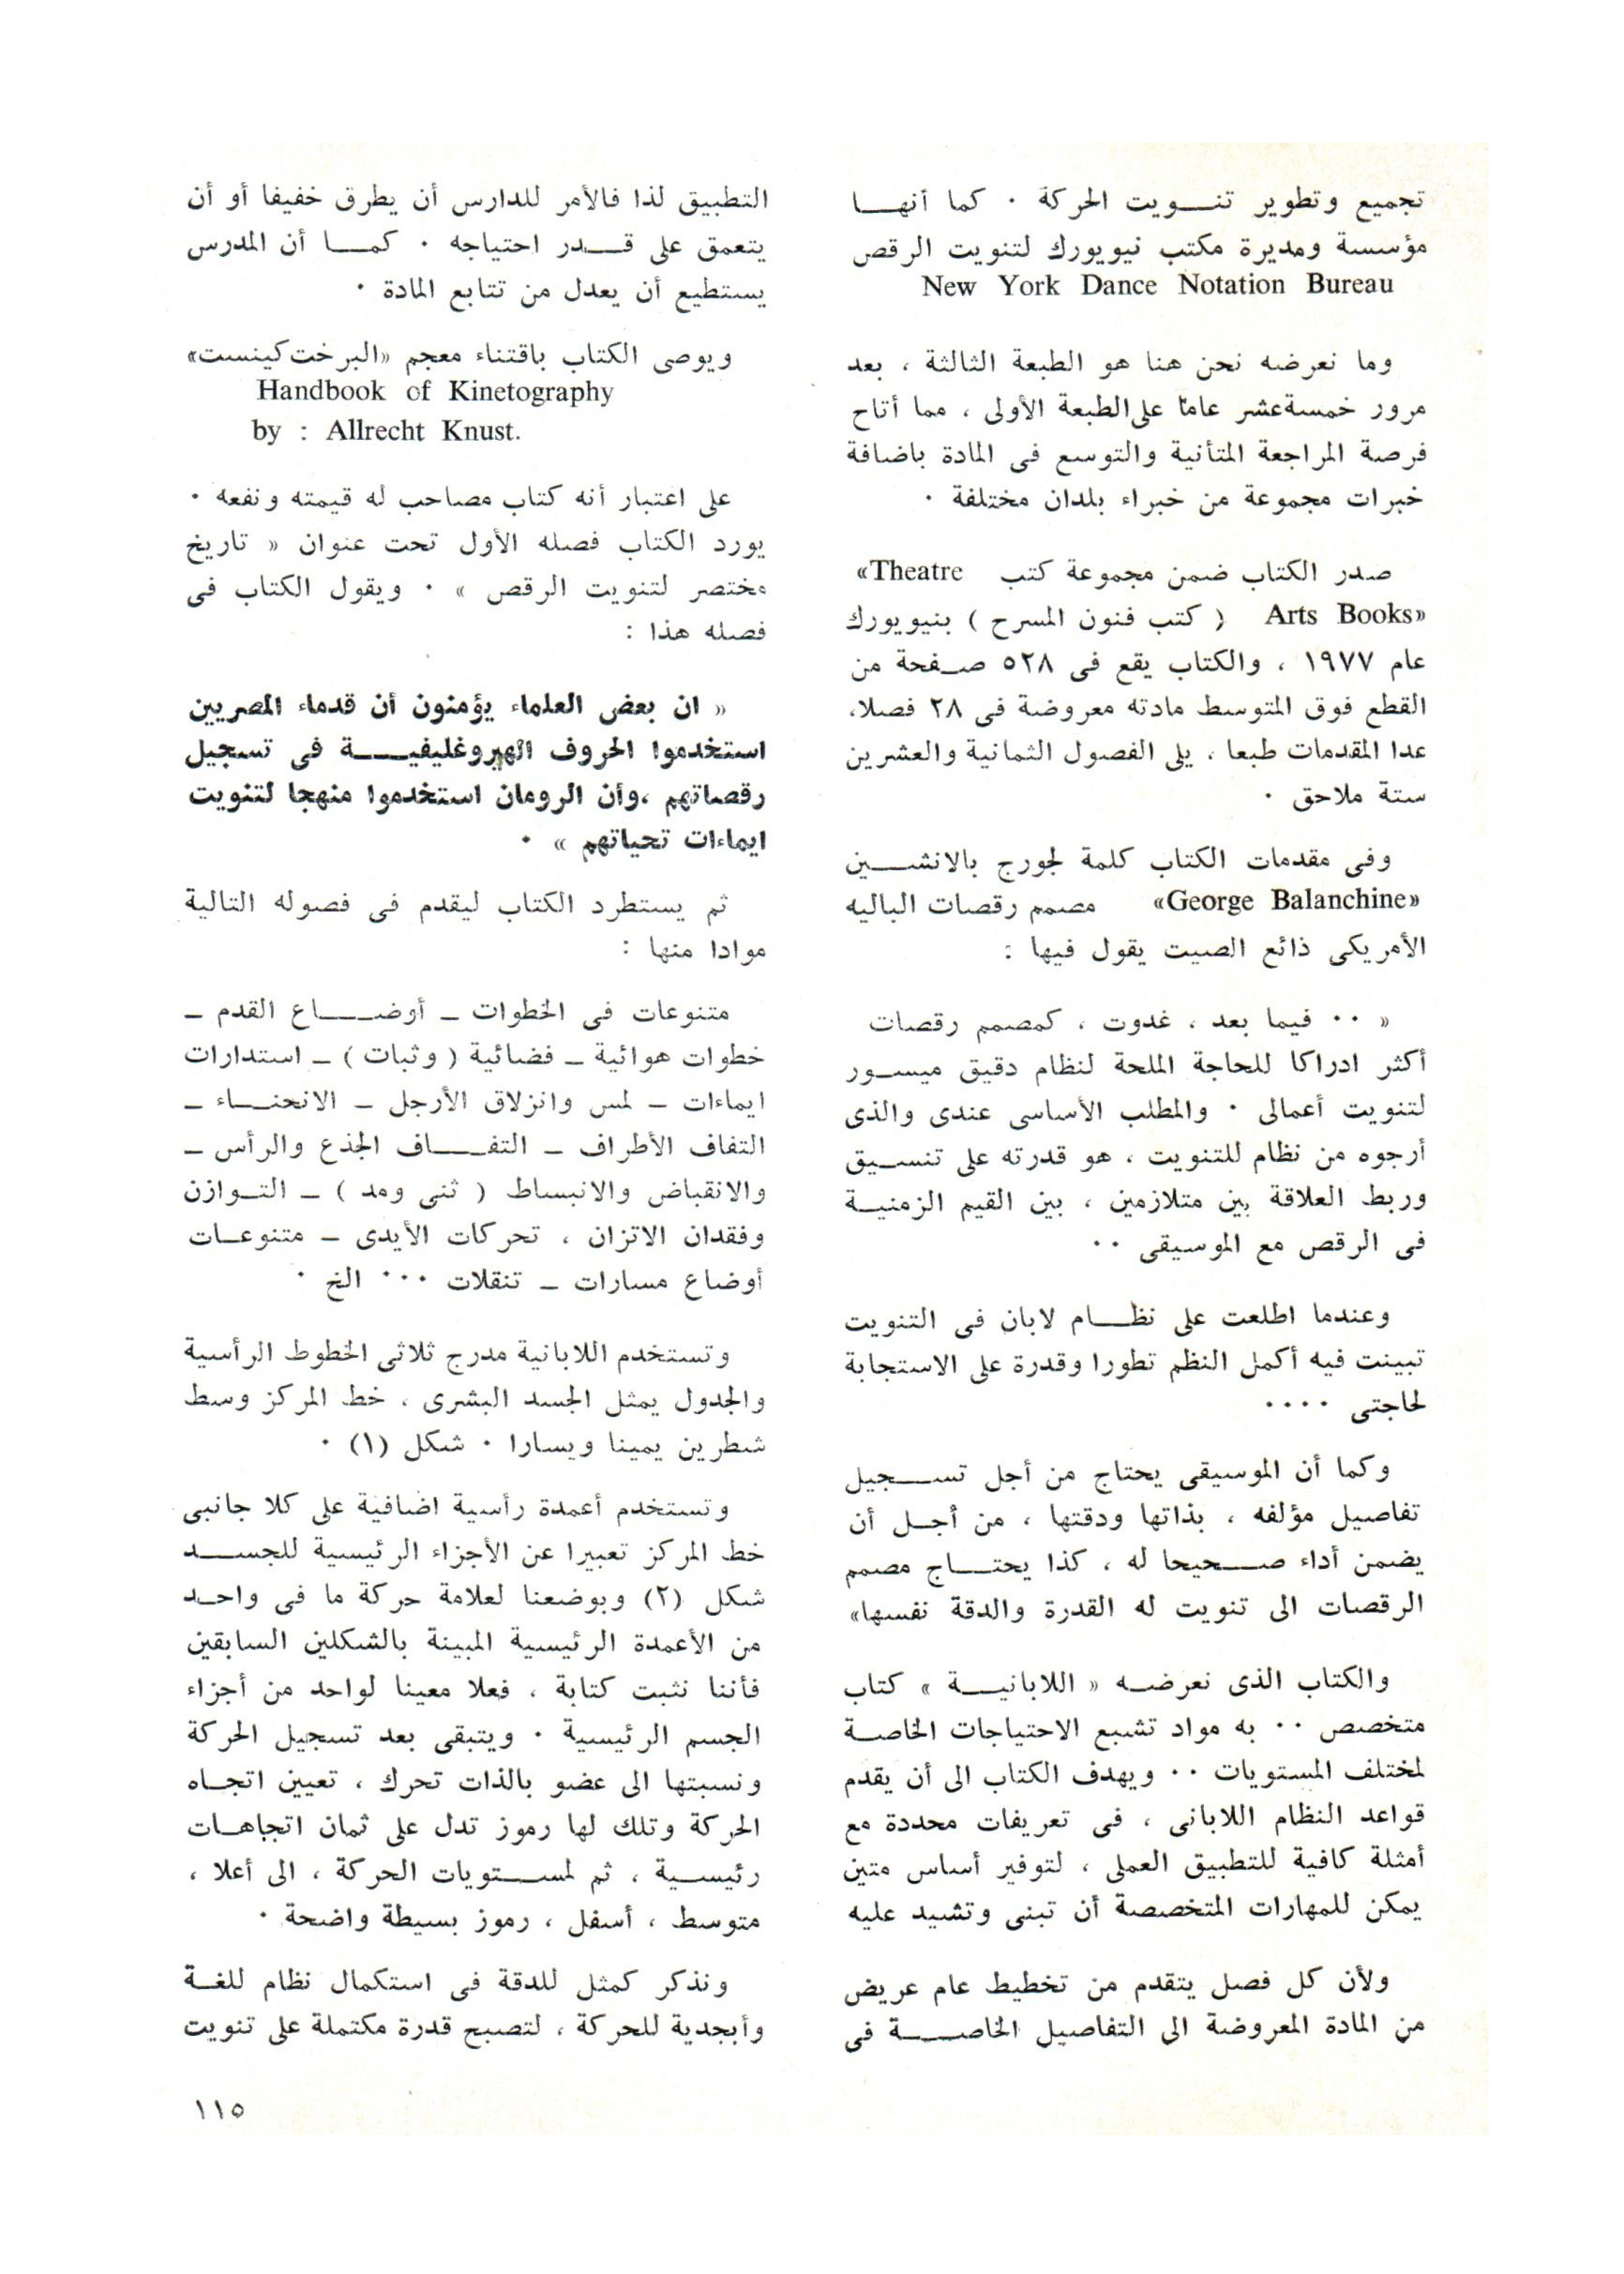 تجميع وتطوير تنويت الحركة ٠ كما أنها
مؤسسة ومديرة مكتب نيويورك لتنويت الرقص
New York Dance Notation Bureau
وما نعرضه نحن هنا هو الطبعة الثالثة ، بعد
مرور خمسة عشر عاما على الطبعة الأولى ، مما أتاح
فرصة المراجعة المتأنية والتوسع فى المادة باضافة
خبرات مجموعة من خبراء بلدان مختلفة ٠
صدر الكتاب ضمن مجموعة كتب «Theatre
Arts Books» ( كتب فنون المسرح ) بنيويورك
عام ١٩٧٧ ، والكتاب يقع فى ٥٢٨ صفحة من
القطع فوق المتوسط مادته معروضة فى ٢٨ فصلا،
عدا المقدمات طبعا ، يلى الفصول الثمانية والعشرين
ستة ملاحق ٠
وفى مقدمات الكتاب كلمة لجورج بالانشين
«George Balanchine» مصمم رقصات الباليه
الأمريكى ذائع الصيت يقول فيها :
« ٠٠ فيما بعد ، غدوت ، كمصمم رقصات
أكثر ادراكا للحاجة الملحة لنظام دقيق ميسور
لتنويت أعمالى ٠ والمطلب الأساسى عندى والذى
أرجوه من نظام للتنويت ، هو قدرته على تنسيق
وربط العلاقة بين متلازمين ، بين القيم الزمنية
فى الرقص مع الموسيقى ٠٠
وعندما اطلعت على نظام لابان فى التنويت
تبينت فيه أكمل النظم تطورا وقدرة على الاستجابة
لحاجتى ٠٠٠٠
وكما أن الموسيقى يحتاج من أجل تسجيل
تفاصيل مؤلفه ، بذاتها ودقتها ، من أجل أن
يضمن أداء صحيحا له ، كذا يحتاج مصمم
الرقصات الى تنويت له القدرة والدقة نفسها»
والكتاب الذى نعرضه « اللابانية » كتاب
متخصص ٠٠ به مواد تشبع الاحتياجات الخاصة
لمختلف المستويات ٠٠ ويهدف الكتاب الى أن يقدم
قواعد النظام اللابانى ، فى تعريفات محددة مع
أمثلة كافية للتطبيق العملى ، لتوفير أساس متين
يمكن للمهارات المتخصصة أن تبنى وتشيد عليه
ولأن كل فصل يتقدم من تخطيط عام عريض
من المادة المعروضة الى التفاصيل الخاصة فى
التطبيق لذا فالأمر للدارس أن يطرق خفيفا أو أن
يتعمق على قدر احتياجه ٠ كما أن المدرس
يستطيع أن يعدل من تتابع المادة ٠
ويوصى الكتاب باقتناء معجم «البرخت كينست»
Handbook of Kinetography
by : Allrecht Knust.
على اعتبار أنه كتاب مصاحب له قيمته ونفعه ٠
يورد الكتاب فصله الأول تحت عنوان « تاريخ
مختصر لتنويت الرقص » ٠ ويقول الكتاب فى
فصله هذا :
« ان بعض العلماء يؤمنون أن قدماء المصريين
استخدموا الحروف الهيروغليفية فى تسجيل
رقصاتهم ،وأن الرومان استخدموا منهجا لتنويت
ايماءات تحياتهم » ٠
ثم يستطرد الكتاب ليقدم فى فصوله التالية
موادا منها :
متنوعات فى الخطوات ــ أوضاع القدم ــ
خطوات هوائية ــ فضائية ( وثبات ) ــ استدارات
ايماءات ــ لمس وانزلاق الأرجل ــ الانحناء ــ
التفاف الأطراف ــ التفاف الجذع والرأس ــ
والانقباض والانبساط ( ثنى ومد ) ــ التوازن
وفقدان الاتزان ، تحركات الأيدى ــ متنوعات
أوضاع مسارات ــ تنقلات ٠٠٠ الخ ٠
وتستخدم اللابانية مدرج ثلاثى الخطوط الرأسية
والجدول يمثل الجسد البشرى ، خط المركز وسط
شطرين يمينا ويسارا ٠ شكل (١) ٠
وتستخدم أعمدة رأسية اضافية على كلا جانبى
خط المركز تعبيرا عن الأجزاء الرئيسية للجسد
شكل (٢) وبوضعنا لعلامة حركة ما فى واحد
من الأعمدة الرئيسية المبينة بالشكلين السابقين
فأننا نثبت كتابة ، فعلا معينا لواحد من أجزاء
الجسم الرئيسية ٠ ويتبقى بعد تسجيل الحركة
ونسبتها الى عضو بالذات تحرك ، تعيين اتجاه
الحركة وتلك لها رموز تدل على ثمان اتجاهات
رئيسية ، ثم لمستويات الحركة ، الى أعلا ،
متوسط ، أسفل ، رموز بسيطة واضحة ٠
ونذكر كمثل للدقة فى استكمال نظام للغة
وأبجدية للحركة ، لتصبح قدرة مكتملة على تنويت
١١٥